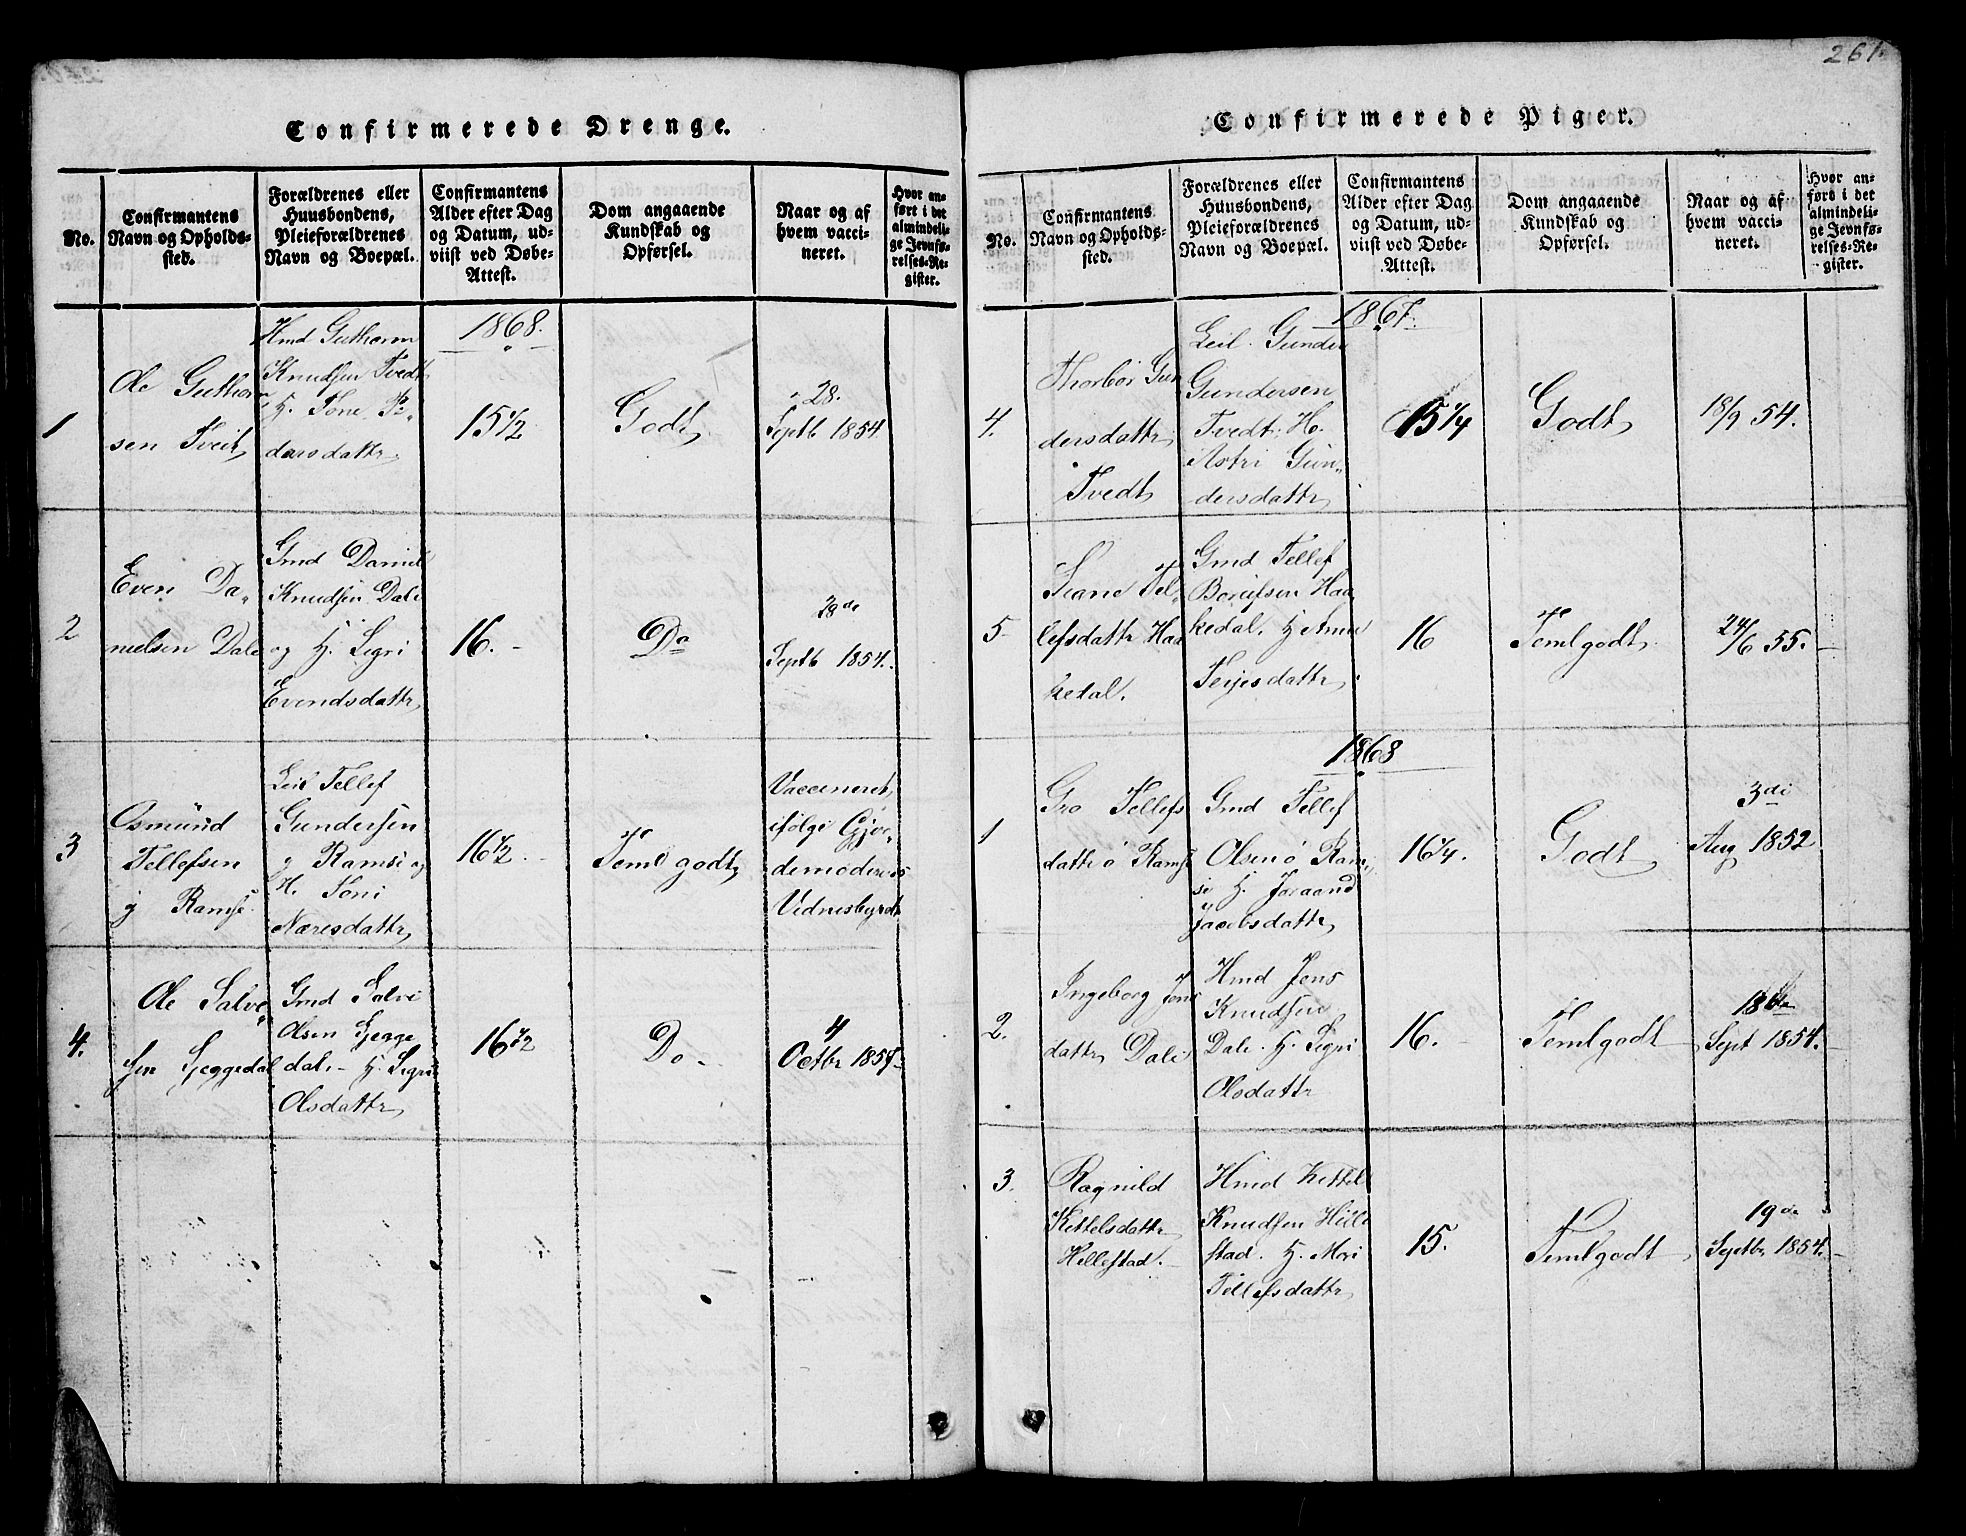 261.
Confirmerede Drenge.
No.
Confirmantens
Navn og Opholds-
sted.
Forældrenes eller
Huusbondens,
Pleieforældrenes
Navn og Boepæl.
Confirmantens
Alder efter Dag
og Datum, ud-
viist ved Døbe-
Attest.
Dom angaaende
Kundskab og
Opførsel.
Naar og af
hvem vacci-
neret.
Hvor an-
ført i det
almindeli-
ge Jevnfø-
relses-Re-
gister.
1868.
1
Ole Guthorm
sen Tveit
Hmd Guthorm
Knudsen Tvedt
H. Tone Pe-
dersdattr
15 1/2
Godt
28.
Septb 1854
2
Even Da-
nielsen Dale
Gmd Daniel
Knudsen Dale
og H. Sigri
Evendsdattr
16. -
Do
29de
Septb 1854.
3
Osmund
Tellefsen
Ramse
Leil Tellef
Gundersen
Ramse og
H. Toni
Næresdattr
16 1/2
Teml godt
Vaccineret
ifølge Gjor-
demoderens
Vidnesbyrd
4.
Ole Salve-
sen Gjeggedal
Gmd Salve
Olsen Gjegge
dal. - H. Sigri
Olsdattr
16 1/2
Do -
4
Octbr 1854
Confirmerede Piger.
No.
Confirmantens
Navn og Opholds-
sted.
Forældrenes eller
Huusbondens,
Pleieforældrenes
Navn og Boepæl.
Confirmantens
Alder efter Dag
og Datum, ud-
viist ved Døbe-
Attest.
Dom angaaende
Kundskab og
Opførsel.
Naar og af
hvem vacci-
neret.
Hvor an-
ført i det
almindeli-
ge Jevnfø-
relses-Re-
gister.
1867.
4.
Thorbor Gun
dersdattr
Tvedt
Leil. Gunder
Gundersen
Tvedt. H.
Astri Gun-
dersdattr
15 1/4
Godt
18/9 54.
5
Siane Tel-
lefsdattr Haa
kedal.
Gmd Tellef
Borufsen Haa
kedal. H Anne
Terjesdattr
16
Temlgodt
24/6 55.
1868
1
Gro Tellefs
dattr ö Ramse
Gmd Tellef
Olsen ö Ram-
se H. Joraand
Jacobsdattr
16 1/4.
Godt
3die
Aug 1852
2.
Ingeborg Jens
dattr Dale
Hmd Jens
Knudsen
Dale. H. Sigri
Olsdattr
16. -
Temlgodt
18de
Sept 1854.
3.
Ragnild
Kettelsdattr
Hillestad.
Hmd Kettel
Knudsen Hille
stad. H. Mari
Tellefsdattr
15.
Temlgodt
19de
Septbr 1854.